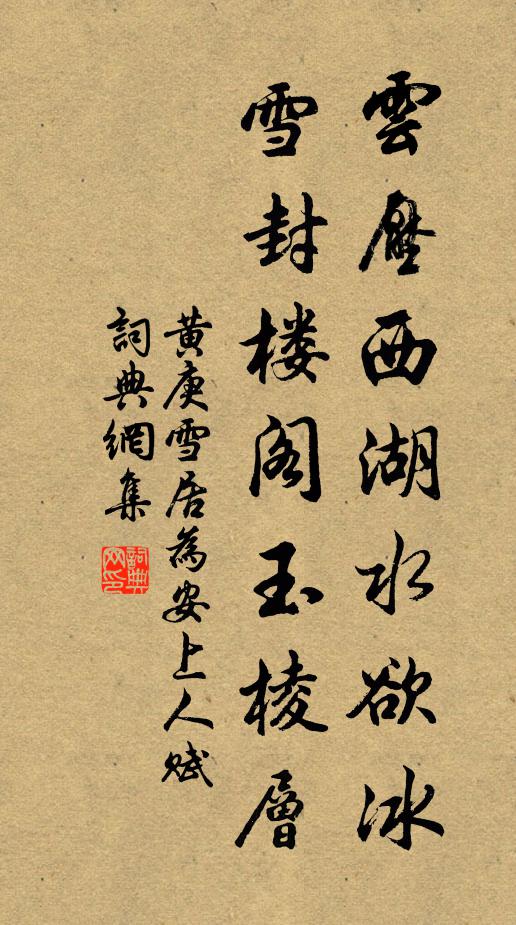 雲壓西湖水欲冰
雪封楼阁玉棱層
黄庚雪居為安上人赋
詞典網集
詞典
网印